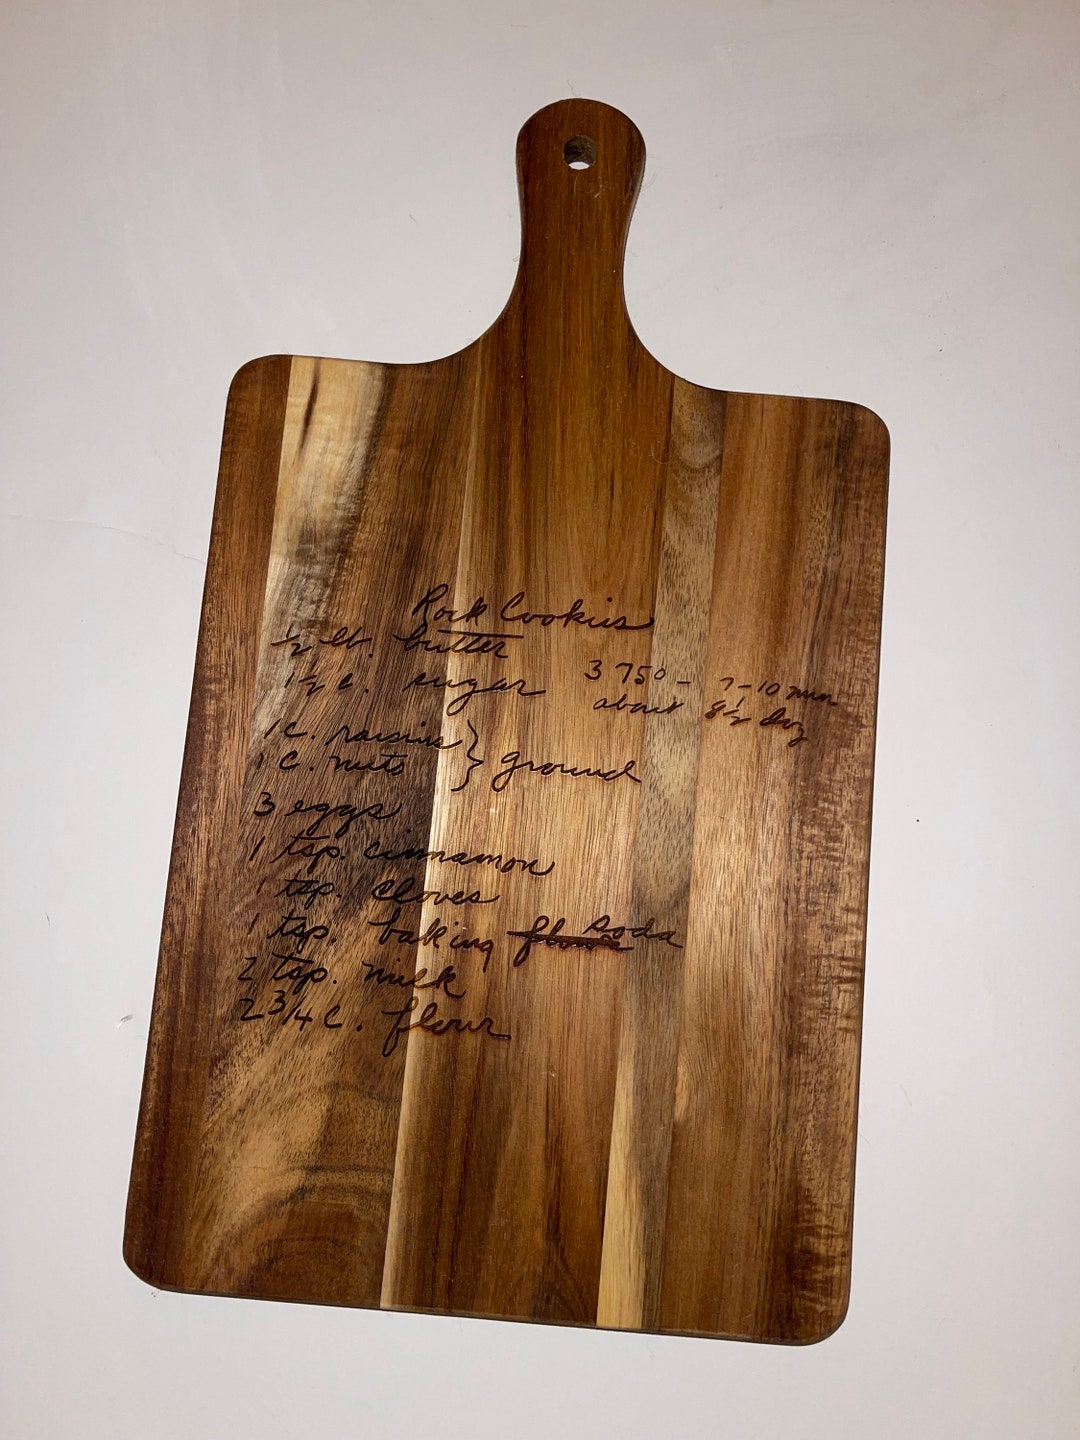 Rock Cookies
1/2 lb. butter
1 1/2 c. sugar
3 75° - 7-10 min
about 8 1/2 doz
1 C. raisins } ground
1 C. nuts
3 eggs
1 tsp. cinnamon
1 tsp. cloves
1 tsp. baking flour soda
2 tsp. milk
2 3/4 C. flour